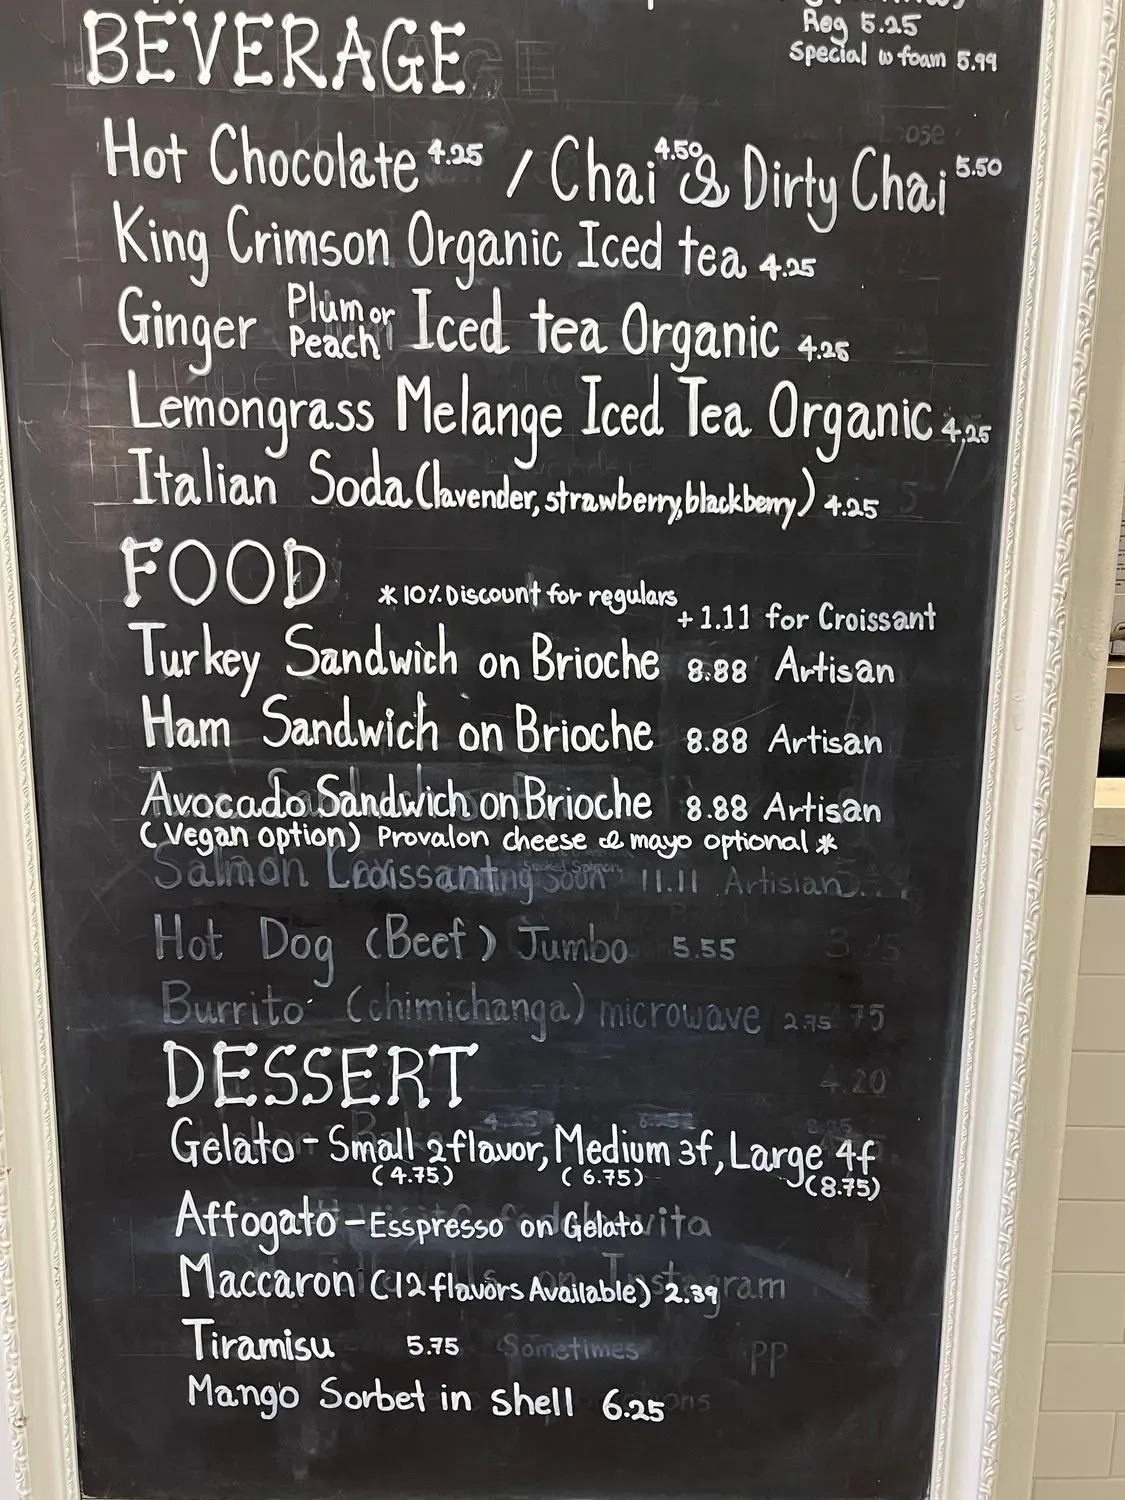 Reg 5.25
Special w foam 5.99
BEVERAGE
Hot Chocolate 4.25 / Chai 4.50 & Dirty Chai 5.50
King Crimson Organic Iced tea 4.25
Ginger Plum or Peach Iced tea Organic 4.25
Lemongrass Melange Iced Tea Organic 4.25
Italian Soda (lavender, strawberry, blackberry) 4.25
FOOD
* 10% Discount for regulars
+ 1.11 for Croissant
Turkey Sandwich on Brioche 8.88 Artisan
Ham Sandwich on Brioche 8.88 Artisan
Avocado Sandwich on Brioche 8.88 Artisan
(Vegan option) Provalon cheese & mayo optional *
Salmon Croissant 11.11 Artisian
Hot Dog (Beef) Jumbo 5.55
Burrito (chimichanga) microwave 2.75
DESSERT
4.20
Gelato - Small 2 flavor, Medium 3f, Large 4f
(4.75) (6.75) (8.75)
Affogato - Esspresso on Gelato
Maccaron (12 flavors Available) 2.39
Tiramisu 5.75 Sometimes
Mango Sorbet in shell 6.25